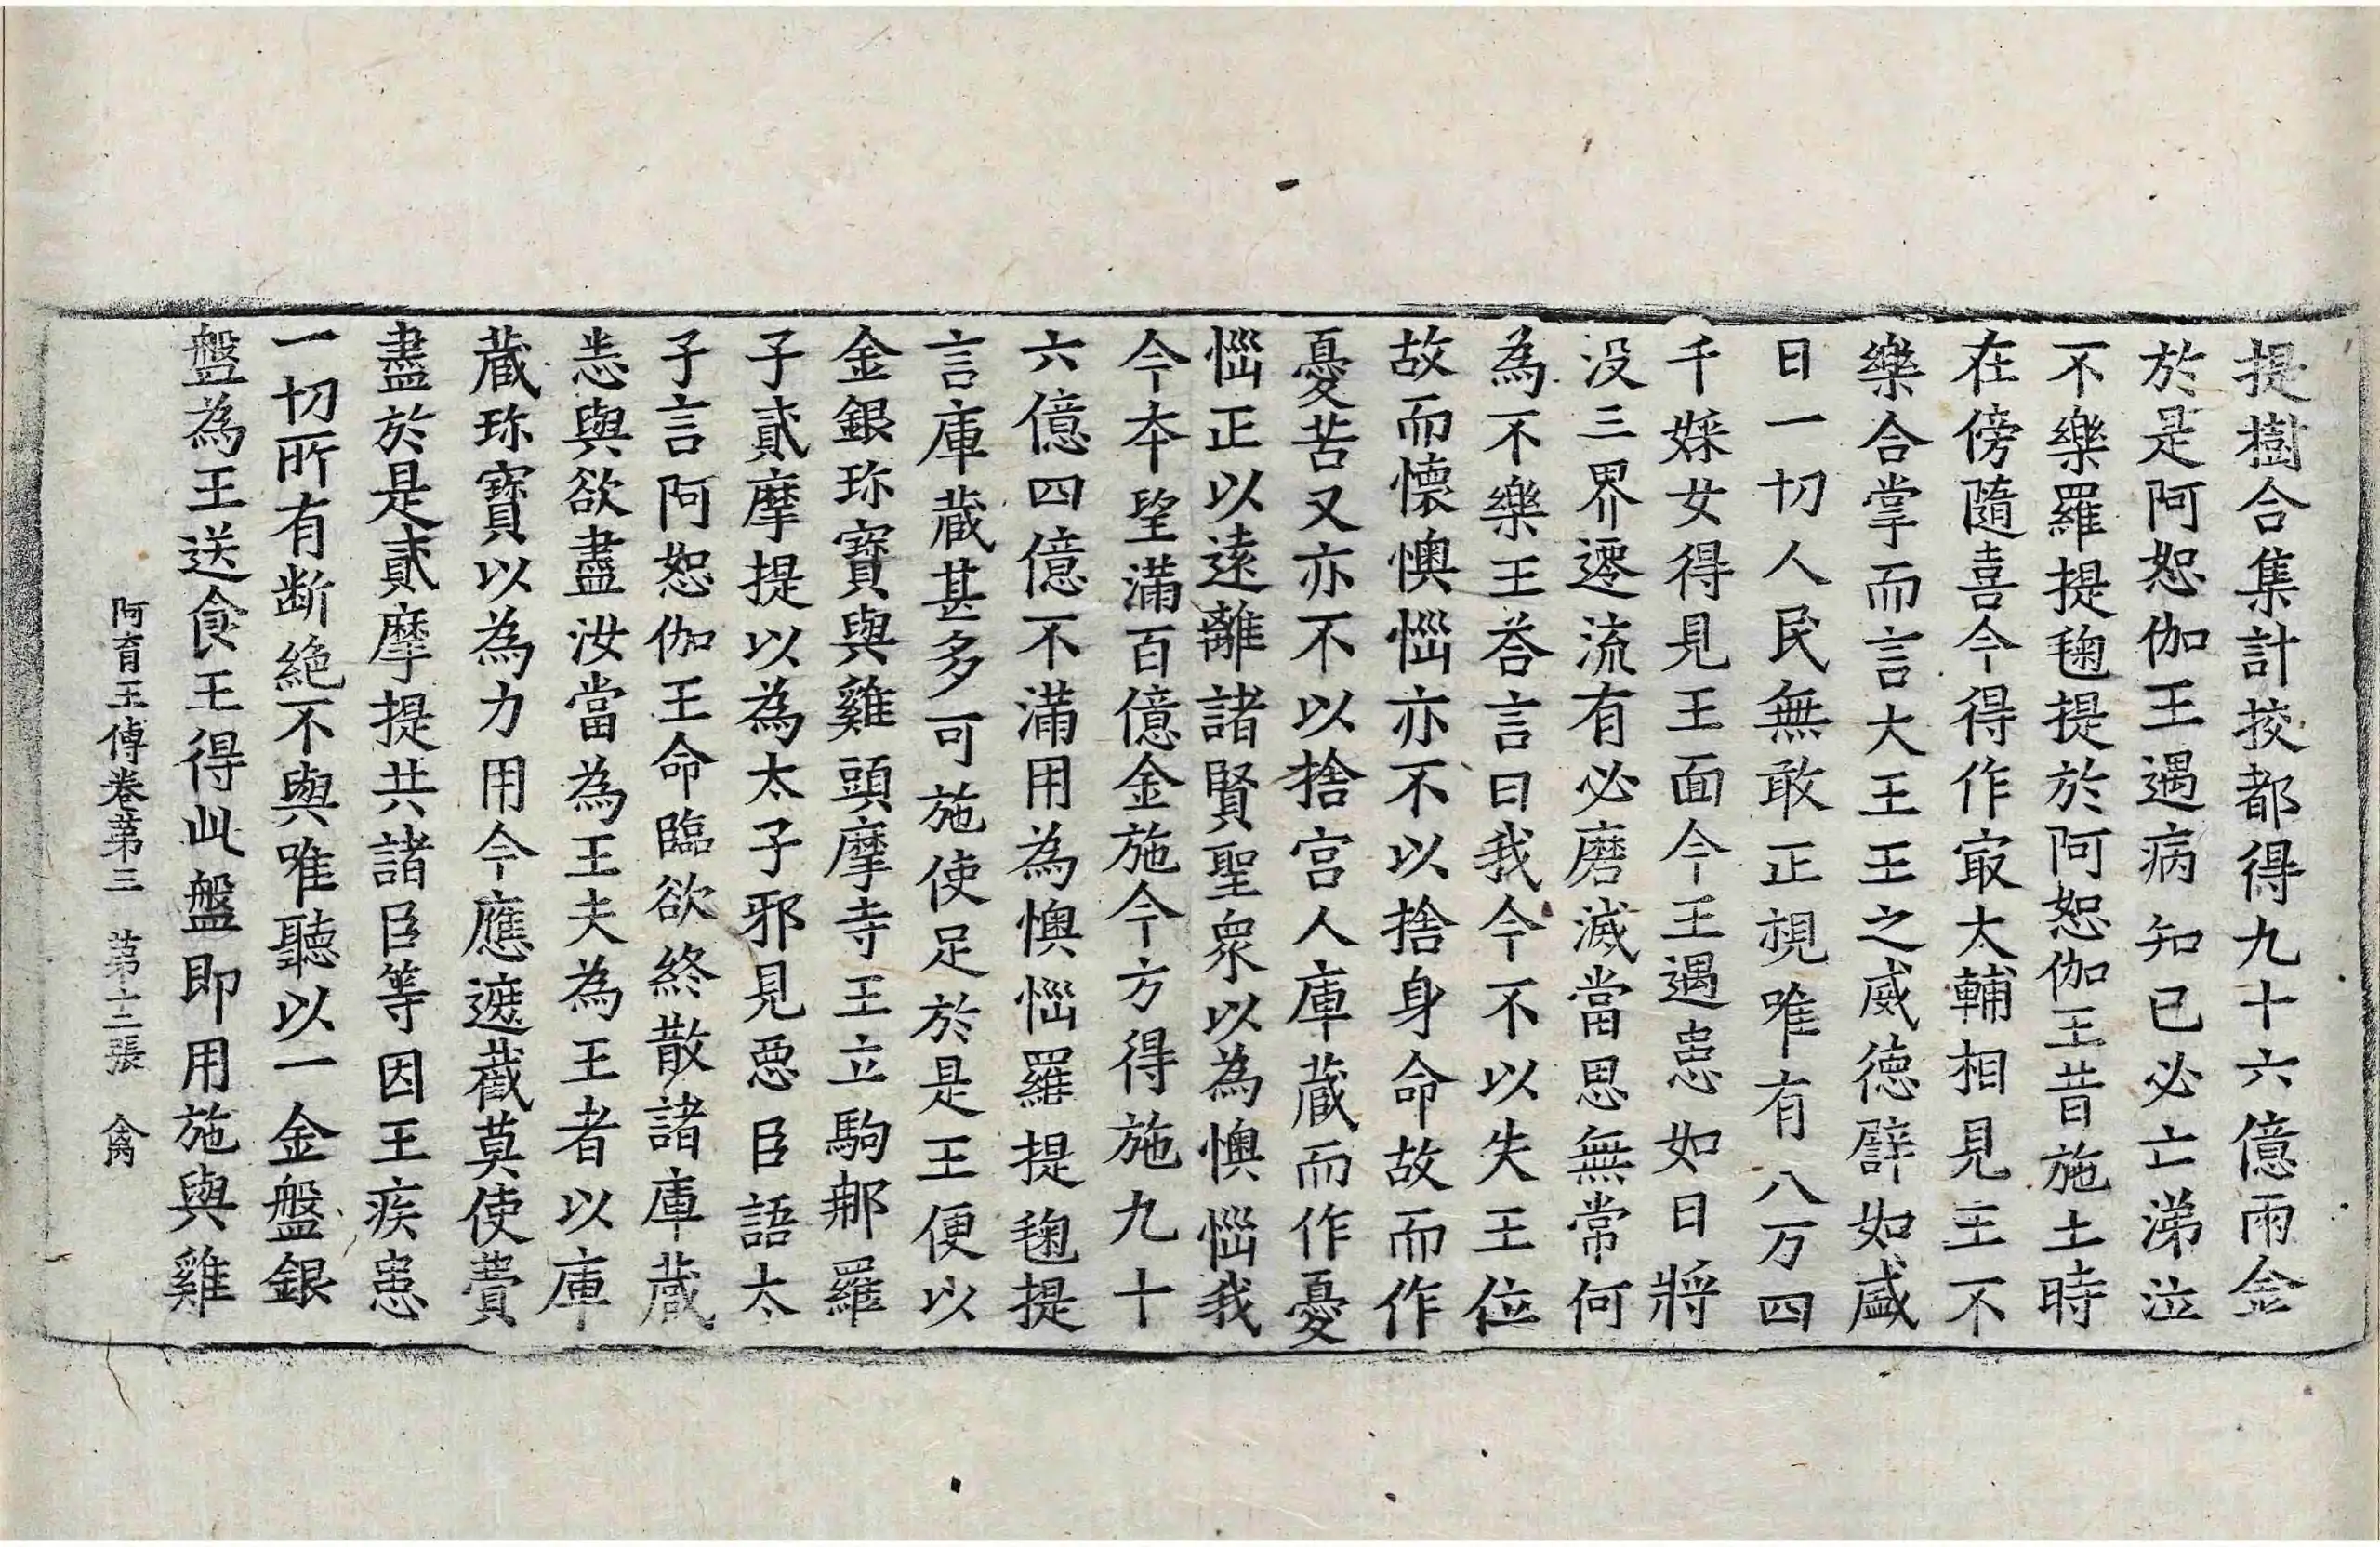 提樹合集計挍都得九十六億兩金
於是阿恕伽王遇病知已必亡涕泣
不樂羅提毱提於阿恕伽王昔施土時
在傍隨喜今得作㝡太輔相見王不
樂合掌而言大王王之威德譬如盛
日一切人民無敢正視唯有八万四
千婇女得見王面今王遇患如日將
没三界遷流有必磨滅當思無常何
為不樂王荅言曰我今不以失王位
故而懷懊惱亦不以捨身命故而作
憂苦又亦不以捨宫人庫蔵而作憂
惱正以遠離諸賢聖衆以為懊惱我
今本望滿百億金施今方得施九十
六億四億不滿用為懊惱羅提毱提
言庫蔵甚多可施使足於是王便以
金銀珎寶與雞頭摩寺王立駒那羅
子貳摩提以為太子邪見惡臣語太
子言阿恕伽王命臨欲終散諸庫蔵
恚與欲盡汝當為王夫為王者以庫
蔵珎寶以為力用今應遮截莫使費
盡於是貳摩提共諸臣等因王疾患
一切所有断絶不與唯聽以一金盤銀
盤為王送食王得此盤即用施與雞
阿育王傳卷苐三 苐十二張 禽